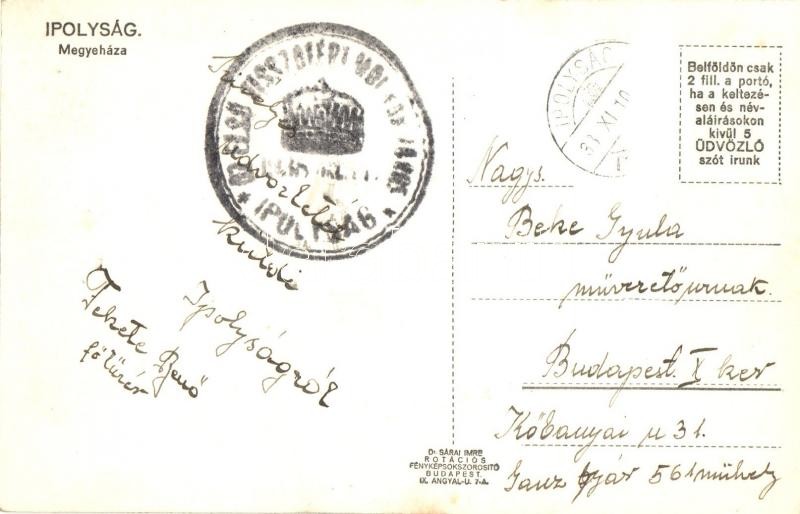 IPOLYSÁG.
Megyeháza
IPOLYSÁG
üdvözletét
küldi
Ipolyságról
Fekete Benő
főtűzér
IPOLYSÁG
XI 10
Belföldön csak
2 fill. a portó,
ha a keltezé-
sen és név-
aláirásokon
kivül 5
ÜDVÖZLŐ
szót irunk
Nagys.
Beke Gyula
művezetőurnak.
Budapest. X ker
Kőbanyai u 31.
Ganz gyár 561 műhely
Dr SÁRAI IMRE
ROTÁCIÓS
FÉNYKÉPSOKSZOROSITÓ
BUDAPEST.
IX. ANGYAL-U. 7-A.